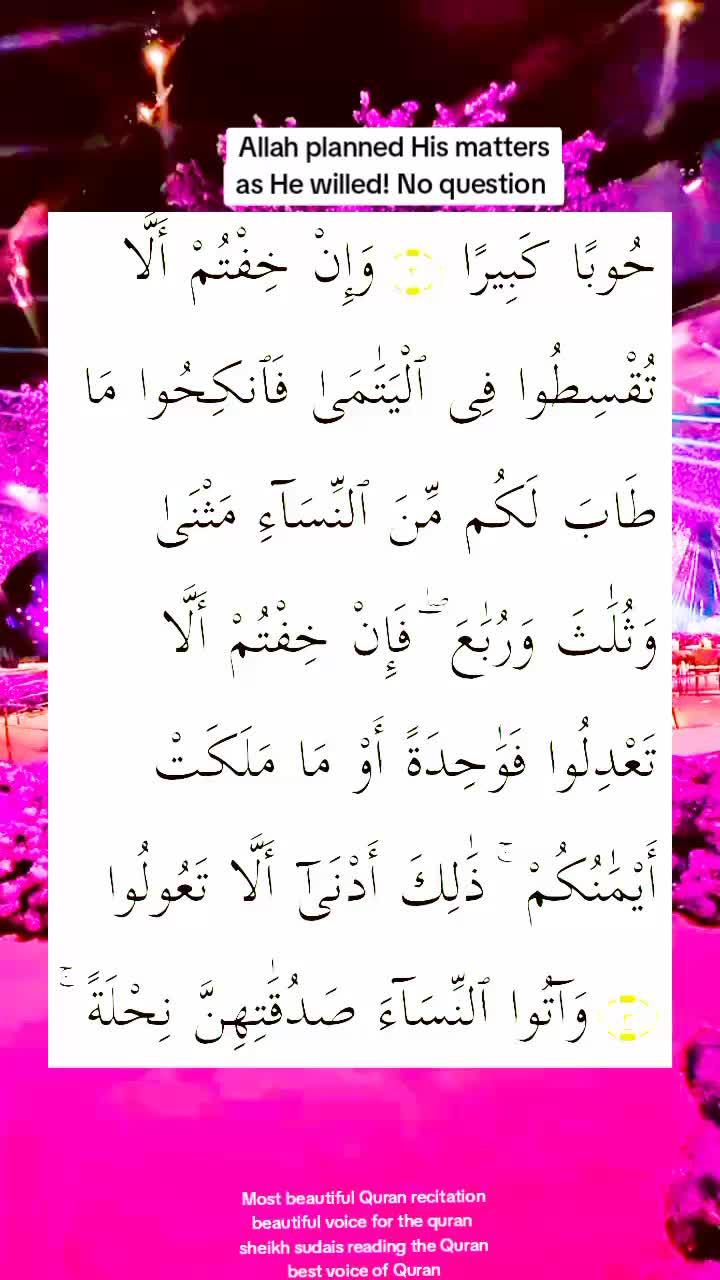 Allah planned His matters
as He willed! No question
حُوبًا كَبِيرًا ٢ وَإِنْ خِفْتُمْ أَلَّا
تُقْسِطُوا فِى ٱلْيَتَٰمَىٰ فَٱنكِحُوا مَا
طَابَ لَكُم مِّنَ ٱلنِّسَآءِ مَثْنَىٰ
وَثُلَٰثَ وَرُبَٰعَ ۖ فَإِنْ خِفْتُمْ أَلَّا
تَعْدِلُوا فَوَٰحِدَةً أَوْ مَا مَلَكَتْ
أَيْمَٰنُكُمْ ۚ ذَٰلِكَ أَدْنَىٰٓ أَلَّا تَعُولُوا
٣ وَآتُوا ٱلنِّسَآءَ صَدُقَٰتِهِنَّ نِحْلَةً ۚ
Most beautiful Quran recitation
beautiful voice for the quran
sheikh sudais reading the Quran
best voice of Quran